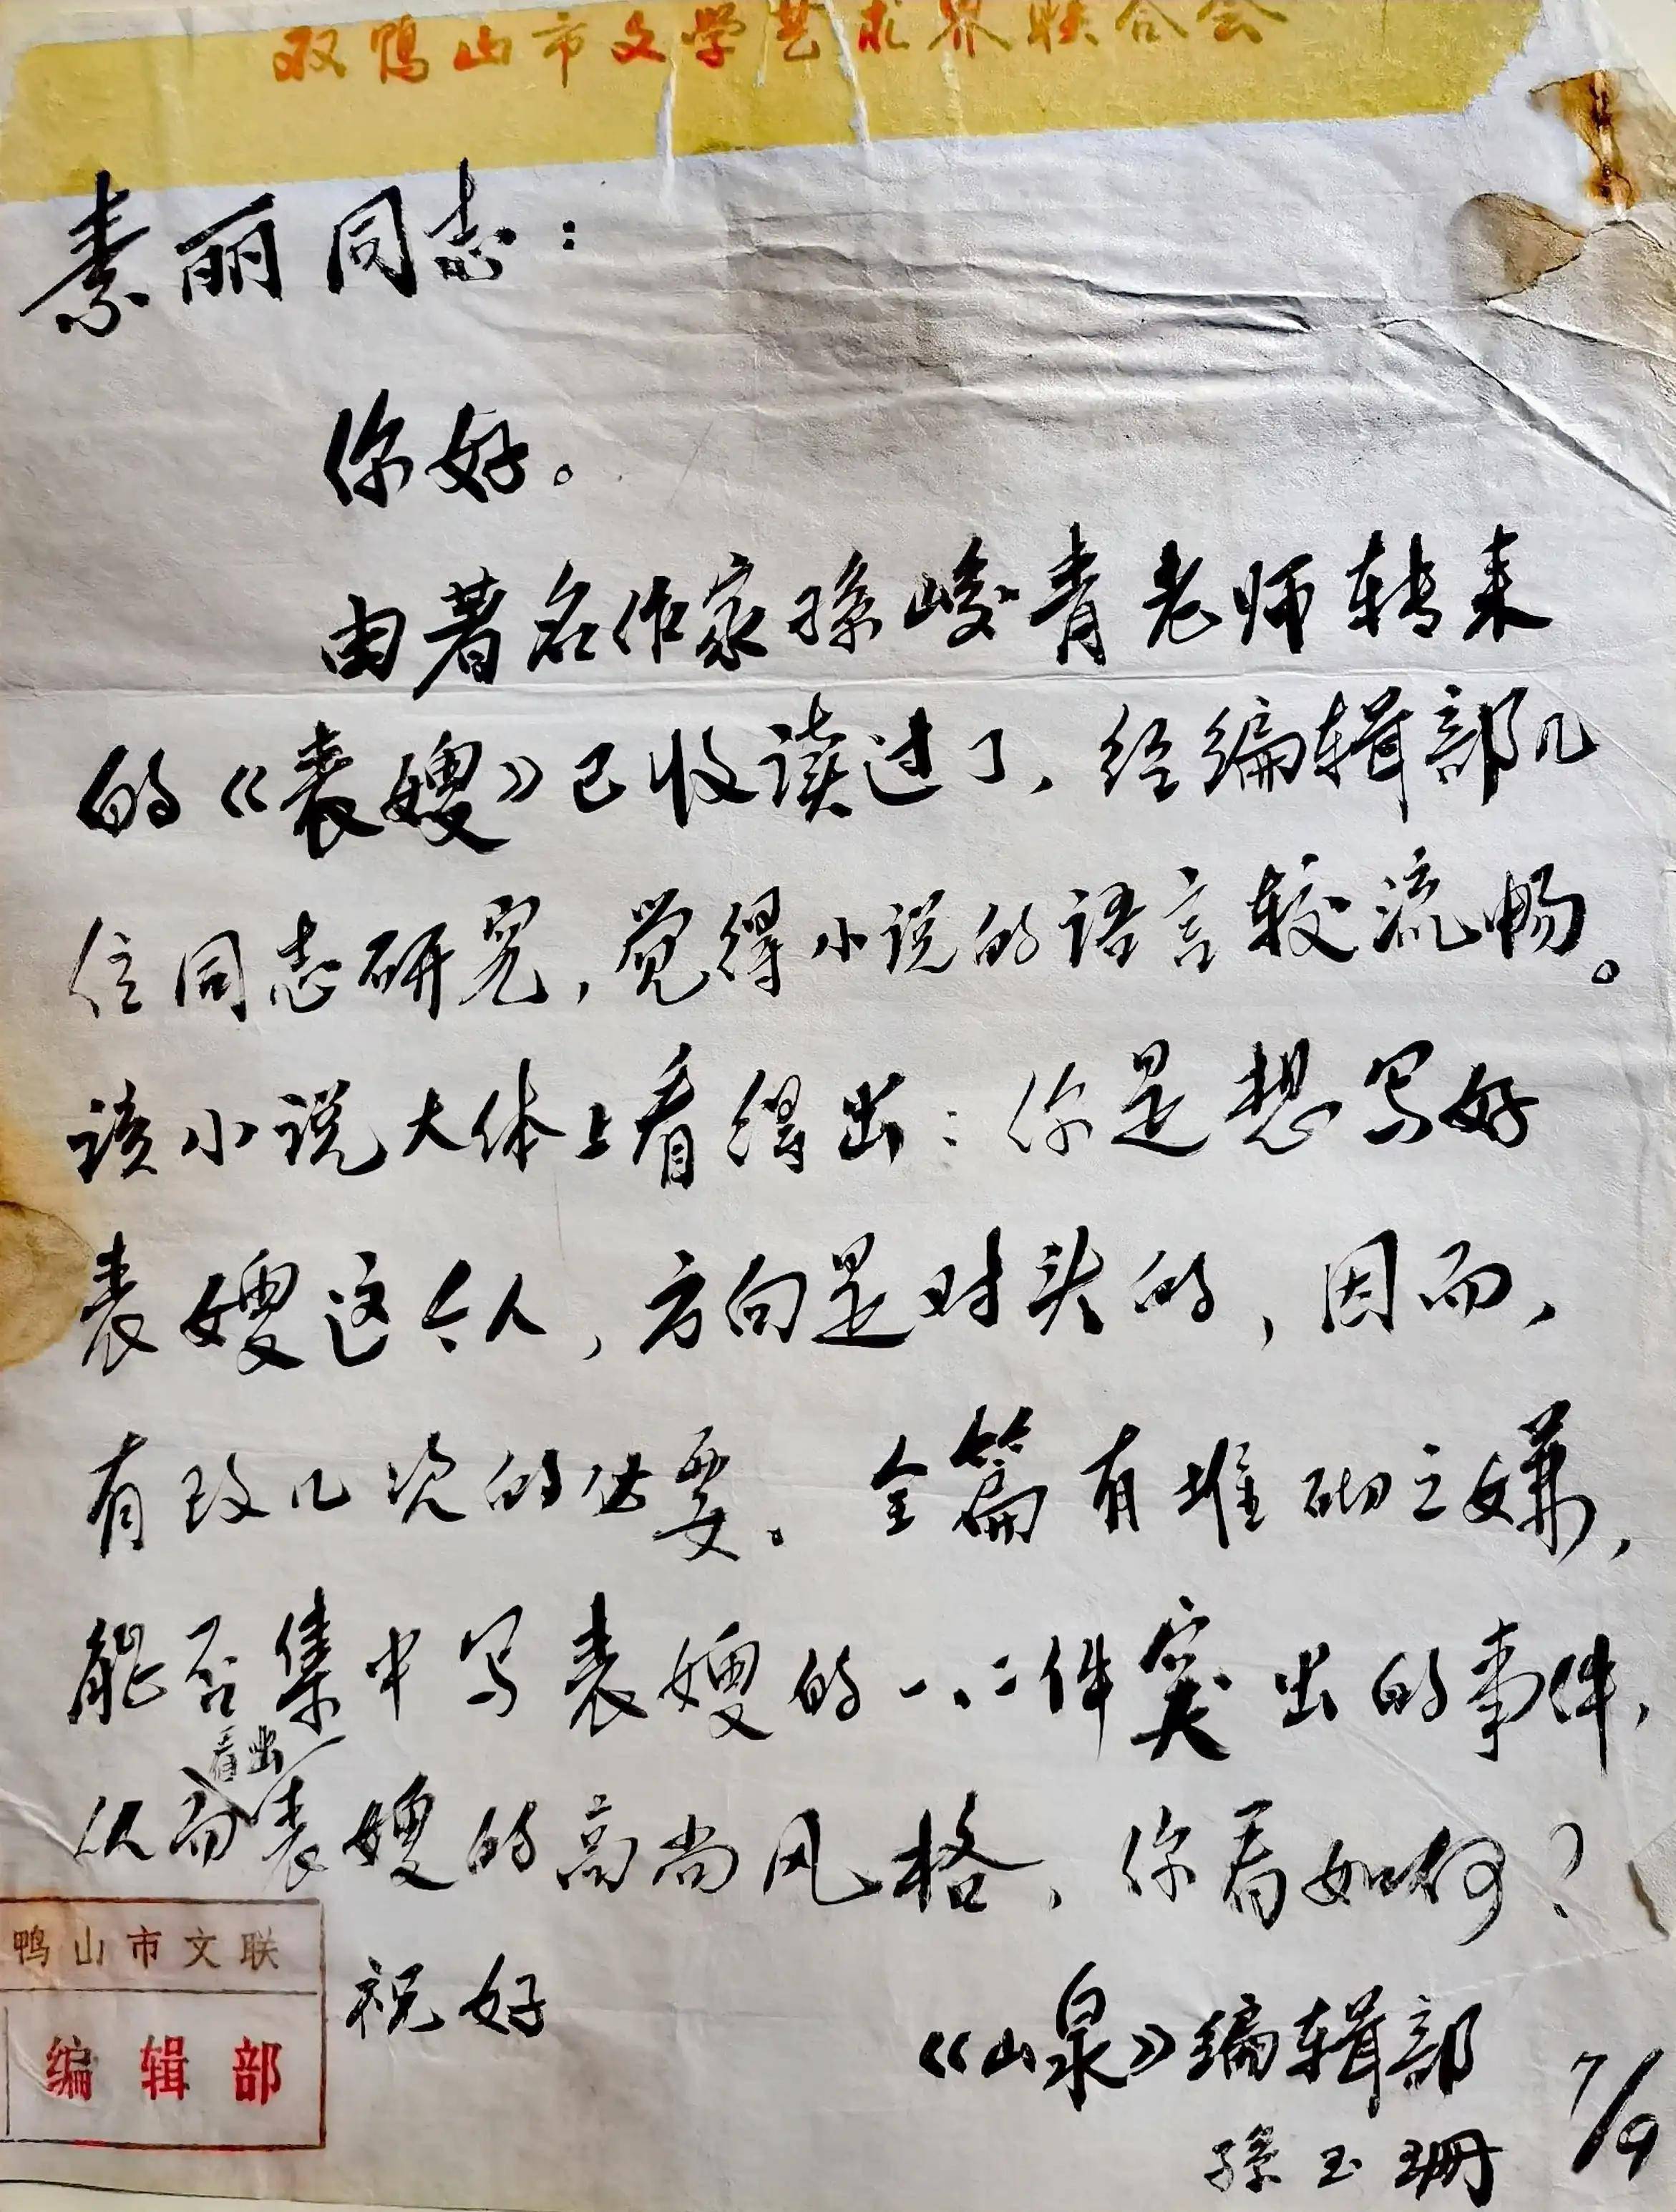 双鸭山市文学艺术界联合会
素丽同志：
你好。
由著名作家孫峻青老师转来
的《表嫂》已收读过了、经编辑部几
位同志研究，觉得小说的语言较流畅。
该小说大体上看得出：你是想写好
表嫂这个人，方向是对头的，因而，
有改几次的必要。全篇有堆砌之嫌，
能否集中写表嫂的一、二件突出的事件，
看出
从而表嫂的高尚风格、你看如何？
祝好
鸭山市文联
编辑部
《山泉》编辑部
孫玉珊
7/9